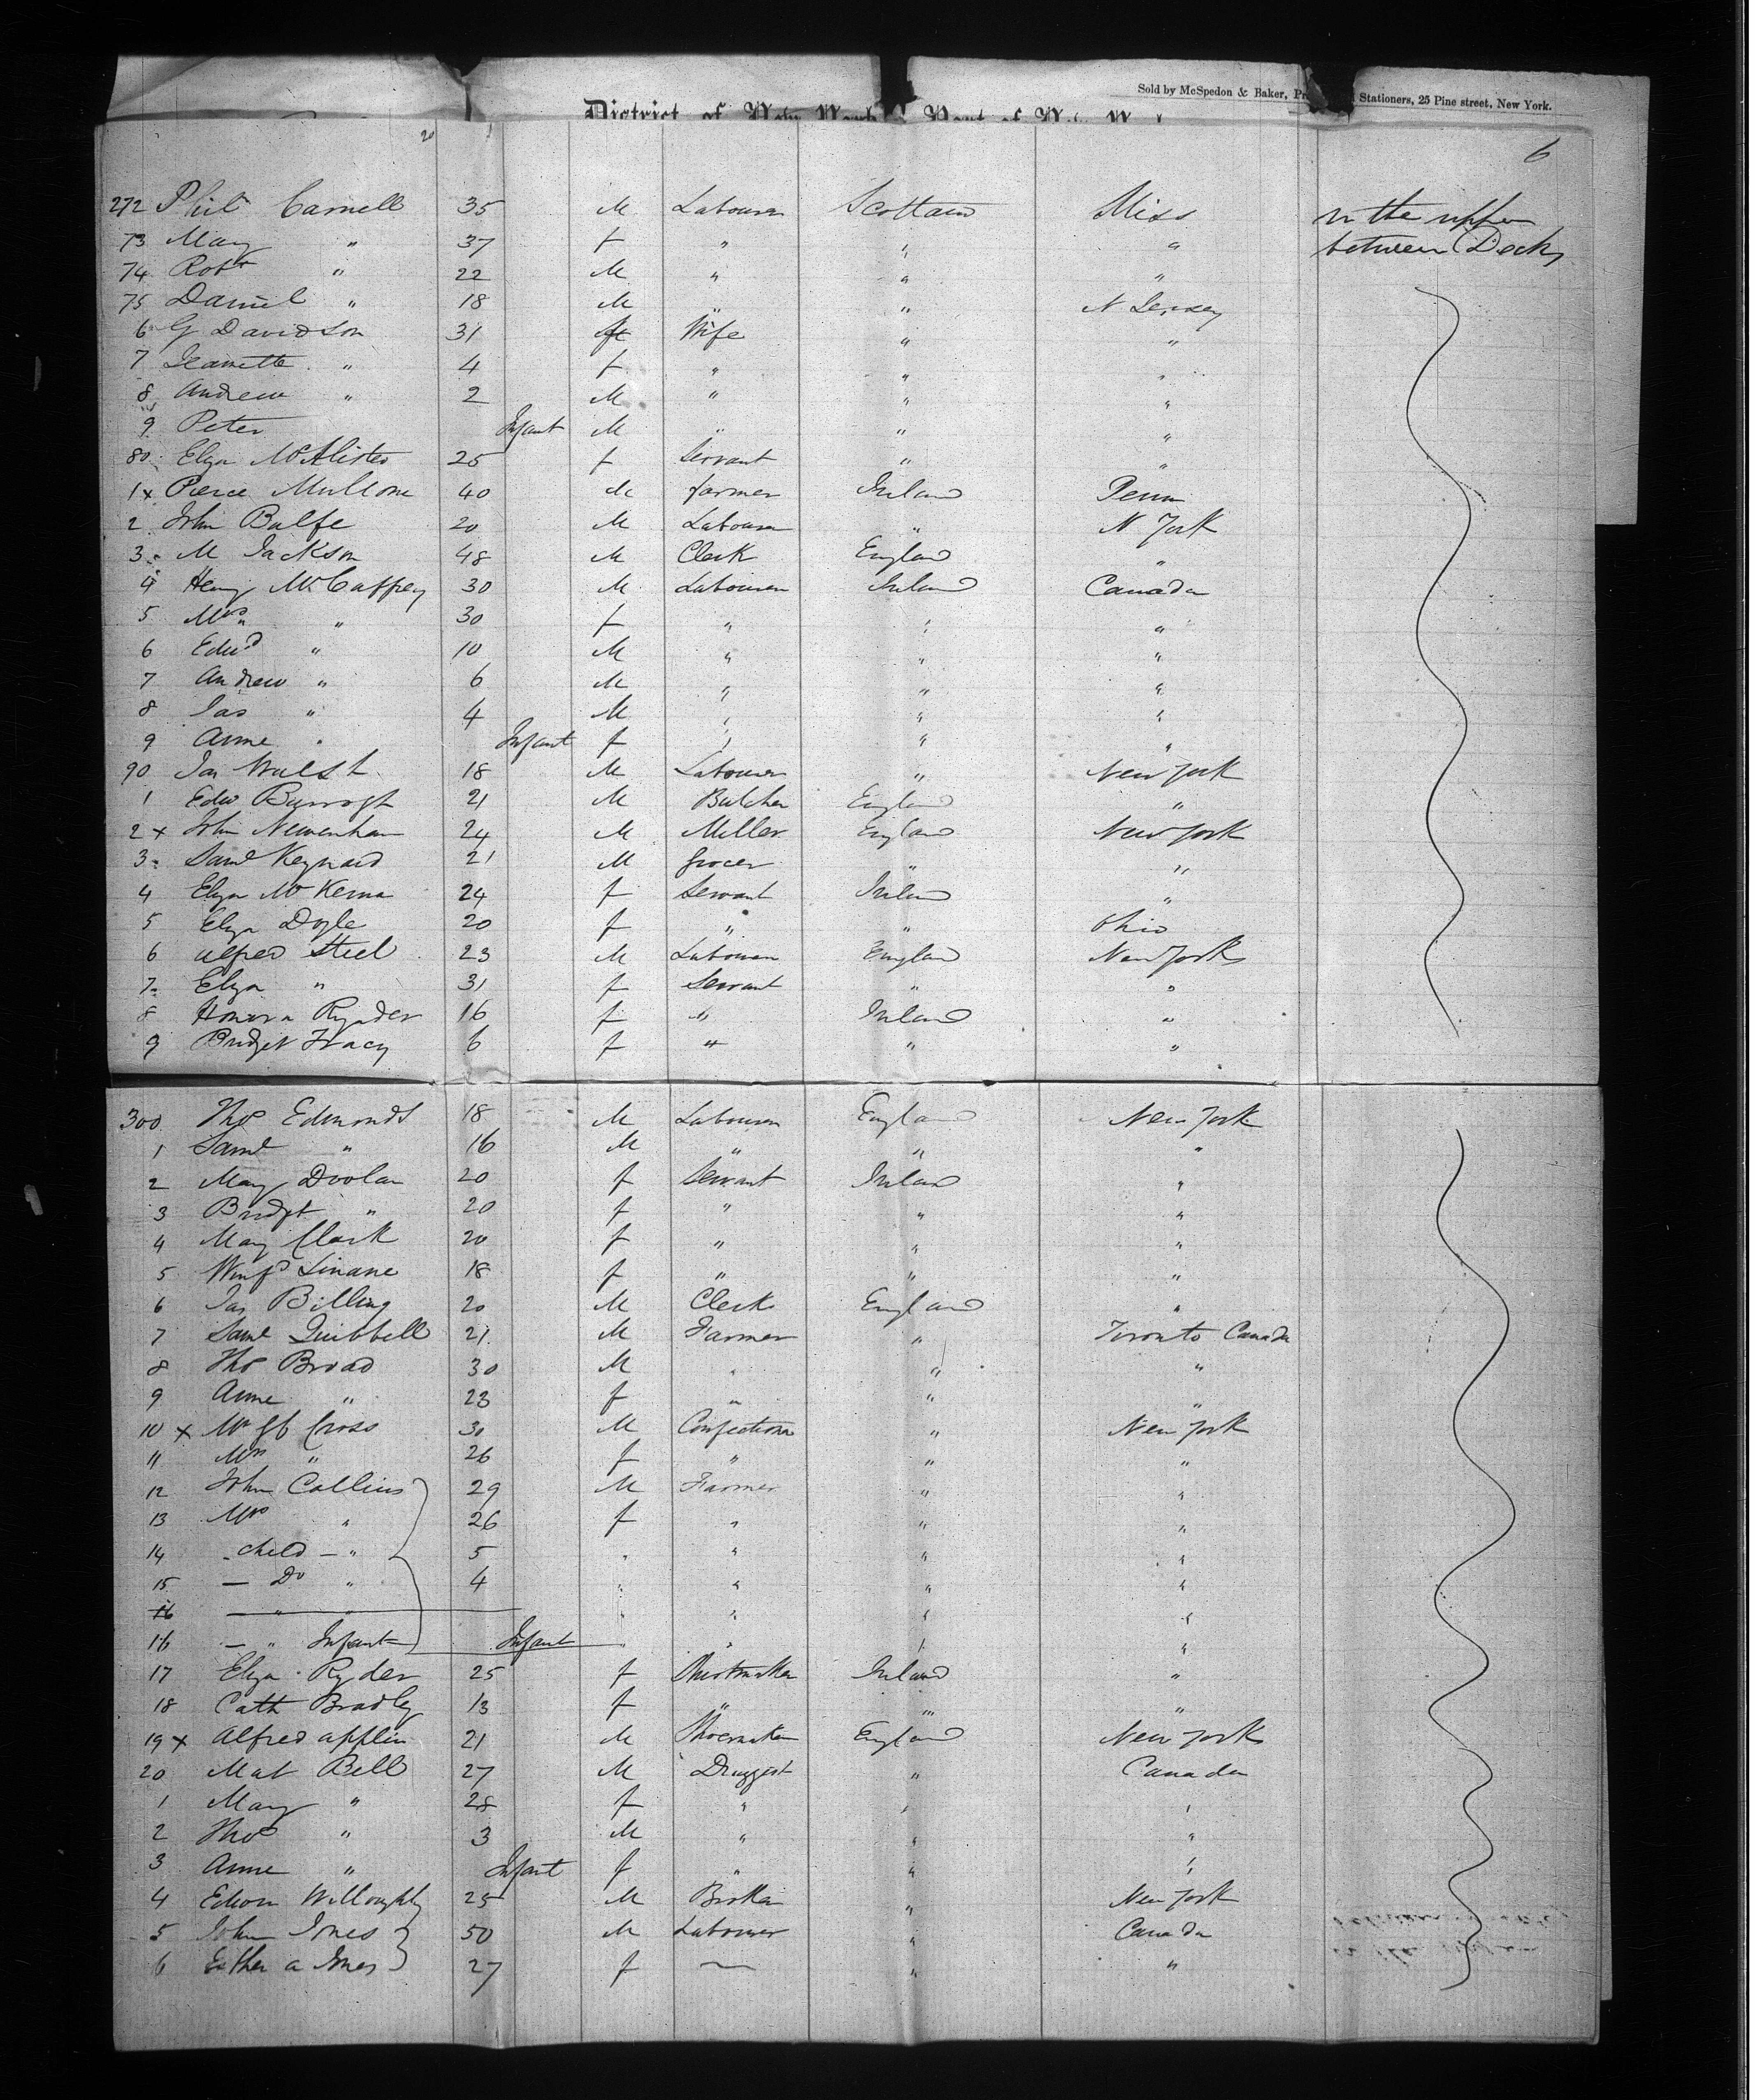 Sold by McSpedon & Baker, Stationers, 25 Pine street, New York.
District of New York Port of New
20 6
272 Phil Carnell 35 M Labourer Scotland Miss in the upper
73 Mary " 37 f " " " between Decks
74 Robt " 22 M " " "
75 Daniel " 18 M " " N Jersey
6 G Davidson 31 f Wife " "
7 Jeanette " 4 f " " "
8 Andrew " 2 M " " "
9 Peter Infant M " " "
80 Eliza McAlister 25 f Servant " "
1 x Pierce 40 M farmer Ireland Penn
2 John Balfe 20 M Labourer " N York
3 M Jackson 48 M Clerk England "
4 Henry McCaffrey 30 M Labourer Ireland Canada
5 Mrs " 30 f " " "
6 Edwd " 10 M " " "
7 Andrew " 6 M " " "
8 Jas " 4 M " " "
9 Anne " Infant f " " "
90 Jas Walsh 18 M Labourer " New York
1 Edw 21 M Butcher England "
2 x John Newenham 24 M Miller England New York
3 Saml 21 M Grocer " "
4 Eliza McKerna 24 f Servant Ireland "
5 Eliza Doyle 20 f " " Ohio
6 Alfred Steel 23 M Labourer England New York
7 Eliza " 31 f Servant " "
8 Honora Ryader 16 f " Ireland "
9 Bridget Tracy 6 f " " "
300 Thos Edmonds 18 M Labourer England New York
1 Saml " 16 M " " "
2 Mary Doolan 20 f Servant Ireland "
3 Bridget " 20 f " " "
4 Mary Clark 20 f " " "
5 Winfd Linane 18 f " " "
6 Jas Billing 20 M Clerk England "
7 Saml Quibbell 21 M Farmer " Toronto Canada
8 Thos Broad 30 M " " "
9 Anne " 23 f " " "
10 x Mr Cross 30 M Confectioner " New York
11 Mrs " 26 f " " "
12 John Collins 29 M Farmer " "
13 Mrs " 26 f " " "
14 child - " 5 " " " "
15 - Do " 4 " " " "
16 - " " " " " "
16 - " Infant Infant " " " "
17 Eliza Ryder 25 f Ireland "
18 Cath Bradly 13 f " " "
19 x Alfred applin 21 M Shoemaker England New York
20 Mat Bell 27 M Druggist " Canada
1 Mary " 28 f " " "
2 Thos " 3 M " " "
3 Anne " Infant f " " "
4 Edwin Willoughby 25 M " New York
5 John Jones 50 M Labourer " Canada
6 Esther a Jones 27 f — " "